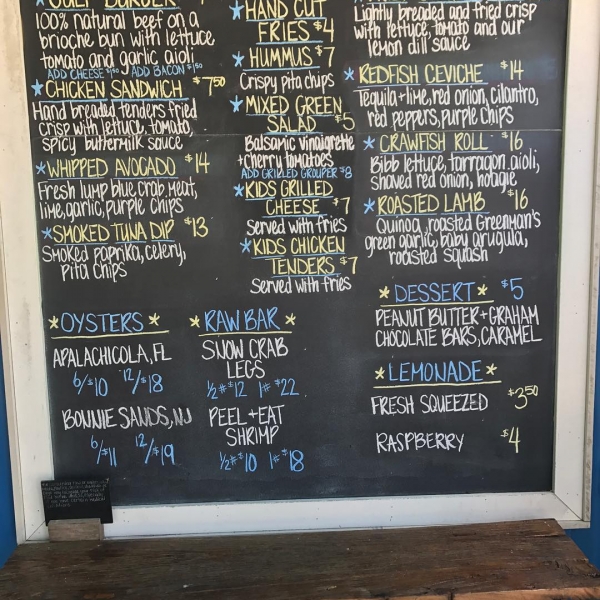 GULF BURGER
100% natural beef on a
brioche bun with lettuce,
tomato and garlic aioli
ADD CHEESE $1.50 ADD BACON $1.50
*CHICKEN SANDWICH $7.50
Hand breaded tenders fried
crisp with lettuce, tomato,
spicy buttermilk sauce
*WHIPPED AVOCADO $14
Fresh lump blue crab meat,
lime, garlic, purple chips
*SMOKED TUNA DIP $13
Smoked paprika, celery,
pita chips
*HAND CUT
FRIES $4
*HUMMUS $7
Crispy pita chips
*MIXED GREEN
SALAD $5
Balsamic vinaigrette
+cherry tomatoes
ADD GRILLED GROUPER $8
*KIDS GRILLED
CHEESE $7
Served with fries
*KIDS CHICKEN
TENDERS $7
Served with fries
Lightly breaded and fried crisp
with lettuce, tomato and our
lemon dill sauce
*REDFISH CEVICHE $14
Tequila+lime, red onion, cilantro,
red peppers, purple chips
*CRAWFISH ROLL $16
Bibb lettuce, tarragon aioli,
shaved red onion, hoagie
*ROASTED LAMB $16
Quinoa, roasted Greenman's
green garlic, baby arugula,
roasted squash
*OYSTERS*
APALACHICOLA, FL
6/$10 12/$18
BONNIE SANDS, NJ
6/$11 12/$19
*RAW BAR*
SNOW CRAB
LEGS
½# $12 1# $22
PEEL+EAT
SHRIMP
½# $10 1# $18
*DESSERT* $5
PEANUT BUTTER+GRAHAM
CHOCOLATE BARS, CARAMEL
*LEMONADE*
FRESH SQUEEZED $3.50
RASPBERRY $4